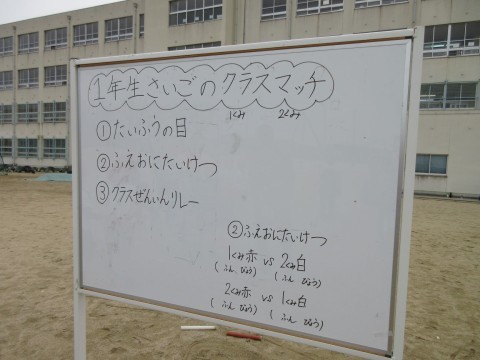 1年生さいごのクラスマッチ
1くみ 2くみ
①たいふうの目
②ふえおにたいけつ
③クラスぜんいんリレー
②ふえおにたいけつ
1くみ赤 vs 2くみ白
( ふん びょう) ( ふん びょう)
2くみ赤 vs 1くみ白
( ふん びょう) ( ふん びょう)